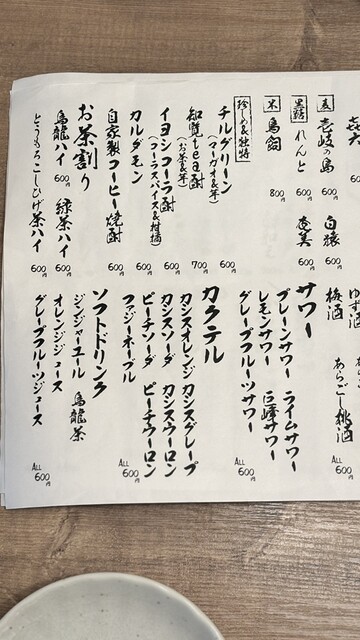 喜六
600円
麦
壱岐の島
600円
白猿
600円
黒糖
れんと
600円
奄美
600円
米
鳥飼
800円
珍しめ&独特
チルグリーン
(マーガオ&芋)
600円
知覧tea酎
(お茶&芋)
700円
イヨシコーラ酎
(コーラスパイス&柑橘)
600円
カルダモン
600円
自家製コーヒー焼酎
600円
お茶割り
烏龍ハイ
600円
緑茶ハイ
600円
とうもろこしひげ茶ハイ
600円
ゆず酒
梅酒
あらごし桃酒
ALL
600円
サワー
プレーンサワー
ライムサワー
レモンサワー
巨峰サワー
グレープフルーツサワー
ALL
600円
カクテル
カシスオレンジ
カシスグレープ
カシスソーダ
カシスウーロン
ピーチソーダ
ピーチウーロン
ファジーネーブル
ALL
600円
ソフトドリンク
ジンジャーエール
烏龍茶
オレンジジュース
グレープフルーツジュース
ALL
600円